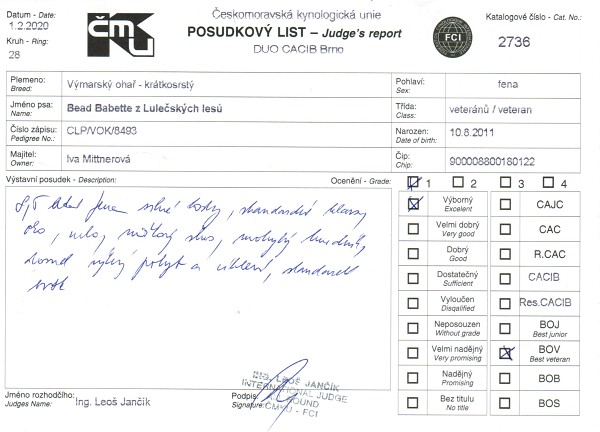 Datum - Date:
1.2.2020
Kruh - Ring:
28
ČMKU
Českomoravská kynologická unie
POSUDKOVÝ LIST – Judge's report
DUO CACIB Brno
FCI
Katalogové číslo - Cat. No.:
2736
Plemeno:
Breed:
Výmarský ohař - krátkosrstý
Pohlaví:
Sex:
fena
Jméno psa:
Name:
Bead Babette z Lulečských lesů
Třída:
Class:
veteránů / veteran
Číslo zápisu:
Pedigree No.:
CLP/VOK/8493
Narozen:
Date of birth:
10.8.2011
Majitel:
Owner:
Iva Mittnerová
Čip:
Chip:
900008800180122
Výstavní posudek - Description:
Ocenění - Grade:
1 2 3 4
8,5 letá fena silné kosty, standardní hlavy
oko, ucho,
pohyb a
standard
Výborný
Excelent
CAJC
Velmi dobrý
Very good
CAC
Dobrý
Good
R.CAC
Dostatečný
Sufficient
CACIB
Vyloučen
Disqalified
Res.CACIB
Neposouzen
Without grade
BOJ
Best junior
Velmi nadějný
Very promising
BOV
Best veteran
Nadějný
Promising
BOB
Bez titulu
No title
BOS
Jméno rozhodčího:
Judges Name:
Ing. Leoš Jančík
Podpis:
Signature:
ING. LEOŠ JANČÍK
INTERNATIONAL JUDGE
ČMKU - FCI